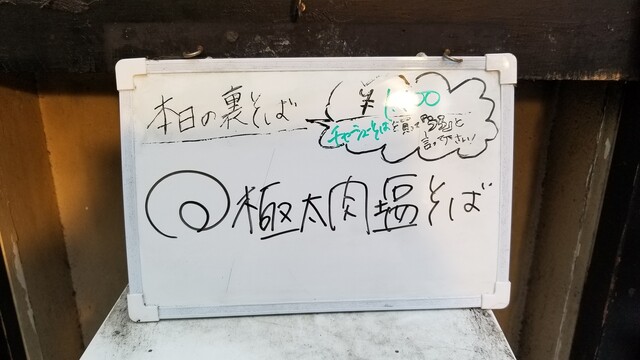 本日の裏そば
¥
チャーシューそばを買って『
』と
言って下さい!
極太肉塩そば